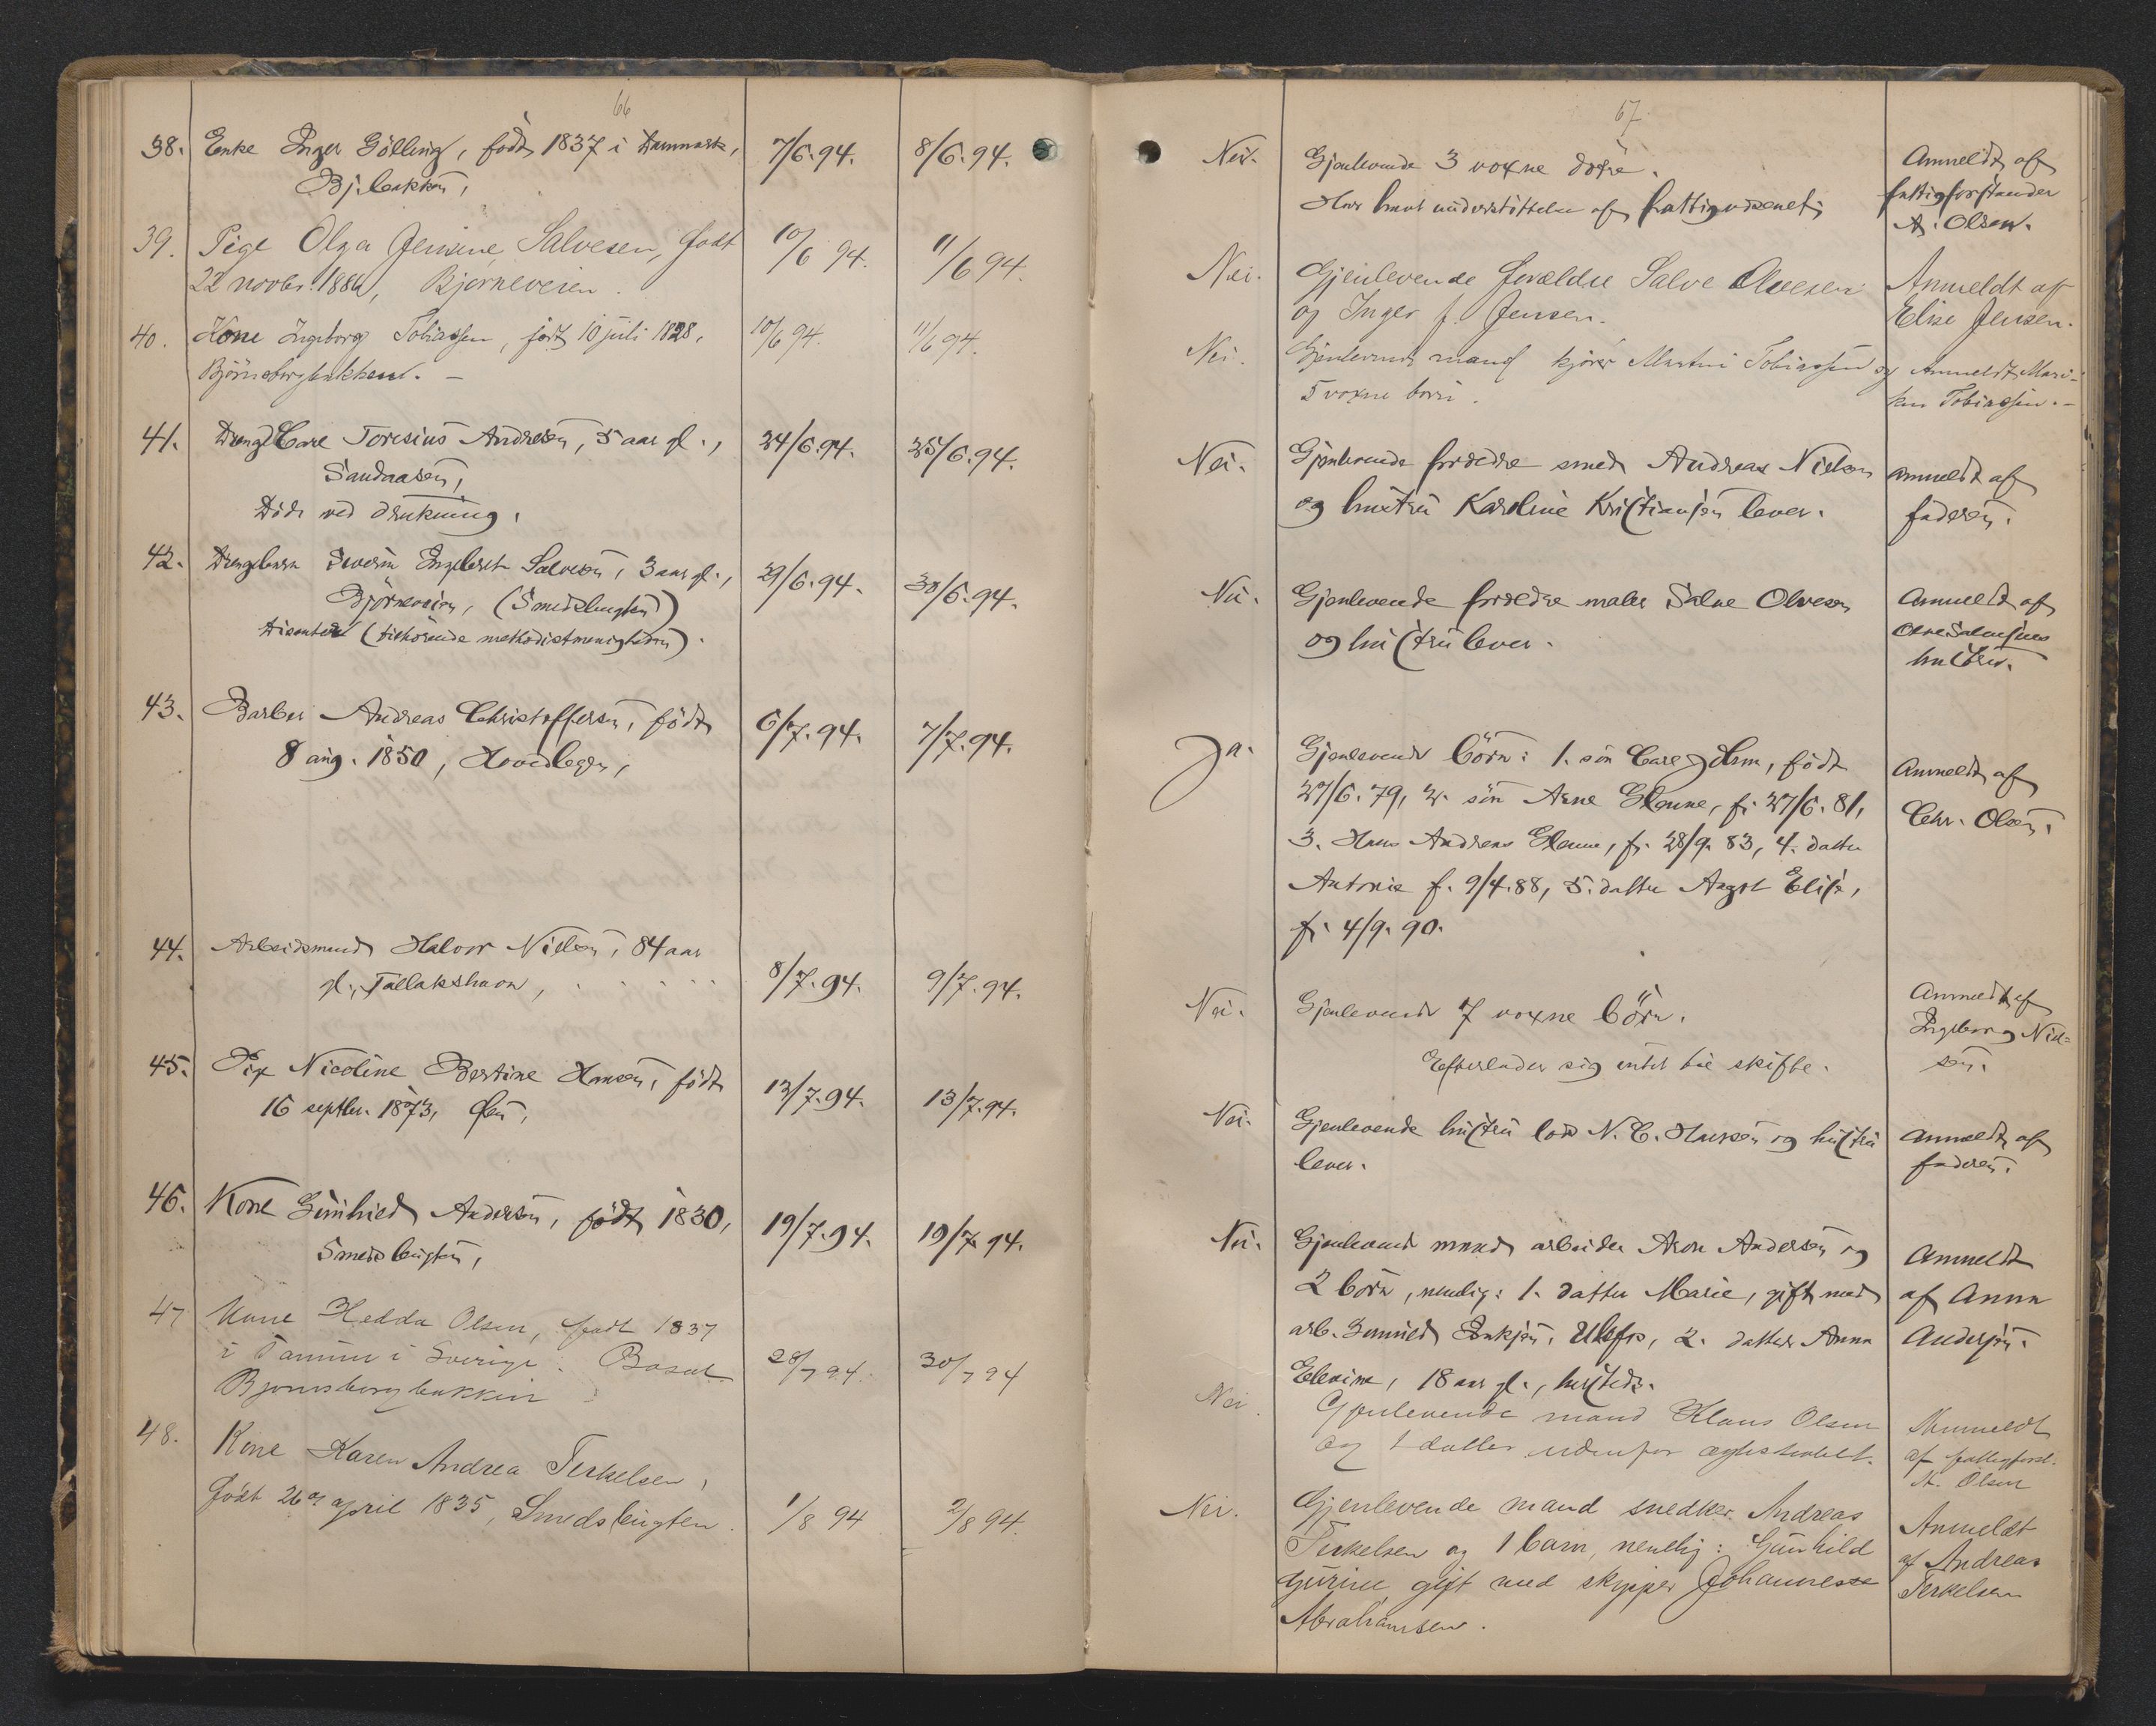 66
38. Enke Inger Gölling, född 1837 i Danmark, 7/6.94. 8/6.94.
Bj.bakken,
39. Pige Olga Jensine Salvesen, født 10/6 94. 11/6 94.
22 novbr. 1886, Bjørneveien.
40. Kone Ingeborg Tobiassen, født 10 juli 1828, 10/6 94. 11/6 94.
Björnsbergbakken. –
41. Dreng Carl Toresius Andresen, 5 aar gl., 24/6.94. 25/6.94.
Sandaasen,
Död ved drukning.
42. Drengebarn Severin Engebret Salvesen, 3 aar gl., 29/6.94. 30/6.94.
Björneveien, (Smedsbugten)
Disenter (tilhörende methodistmenigheden).
43. Barber Andreas Christoffersen, född 6/7.94. 7/7.94.
8 aug. 1850,
44. Arbeidsmand Halvor Nielsen, 84 aar
gl., Tallakshavn, 8/7.94. 9/7.94.
45. Pige Nicoline Bertine Hansen, född 12/7.94. 13/7.94.
16 septbr. 1873,
46. Kone Gunhild Andersen, född 1830, 19/7.94. 19/7 94.
Smedsbugten,
47 Kone Hedda Olsen, født 1837
i Tanum i Sverige. Bosat 28/7 94. 30/7 94
Bjørnsbergbakken
48. Kone Karen Andrea Terkelsen,
født 26de april 1835, Smedsbugten. 1/8 94 2/8 94.
67
Nei. Gjenlevende 3 voxne døtre. Anmeldt af
Har havt understöttelse af fattigvæsenet. fattigforstander
A. Olsen.
Nei. Gjenlevende forældre Salve Olvesen Anmeldt af
og Inger f. Jensen. Elise Jensen.
Nei. Gjenlevende mand kjører Martin Tobiassen og Anmeldt Mari-
5 voxne børn. Tobiassen. –
Nei. Gjenlevende forældre smed Andreas Nielsen anmeldt af
og hustru Karoline Kristiansen lever. faderen.
Nei. Gjenlevende forældre maler Salve Olvesen Anmeldt af
og hustru lever. Olve Salvesens
hustru.
Ja. Gjenlevende börn: 1. sön Carl, född Anmeldt af
27/6.79, 2. sön Arne, f. 27/6.81, Chr. Olsen.
3. Hans Andreas, f. 28/9 83, 4. datter
Antonie f. 9/4.88, 5. datter Elise,
f. 4/9.90.
Nei. Gjenlevende 7 voxne börn. Anmeldt af
Ingeborg Niel-
Efterlader sig intet til skifte. sen.
Nei. Gjenlevende hustru lods N. C. Hansen og hustru anmeldt af
lever. faderen.
Nei. Gjenlevende mand arbeider Aron Andersen og Anmeldt
2 börn, nemlig: 1. datter Marie, gift med af Anna
arb. Ulefos, 2. datter Anna Andersen.
Elevine, 18 aar gl., hersteds.
Nei. Gjenlevende mand Klaus Olsen Anmeldt
og 1 datter udenfor ægteskabet. af fattigforst.
A. Olsen
Nei. Gjenlevende mand snedker Andreas Anmeldt
Terkelsen og 1 barn, nemlig: Gunhild af Andreas
Gurine, gift med skipper Johannes Terkelsen
Abrahamsen.